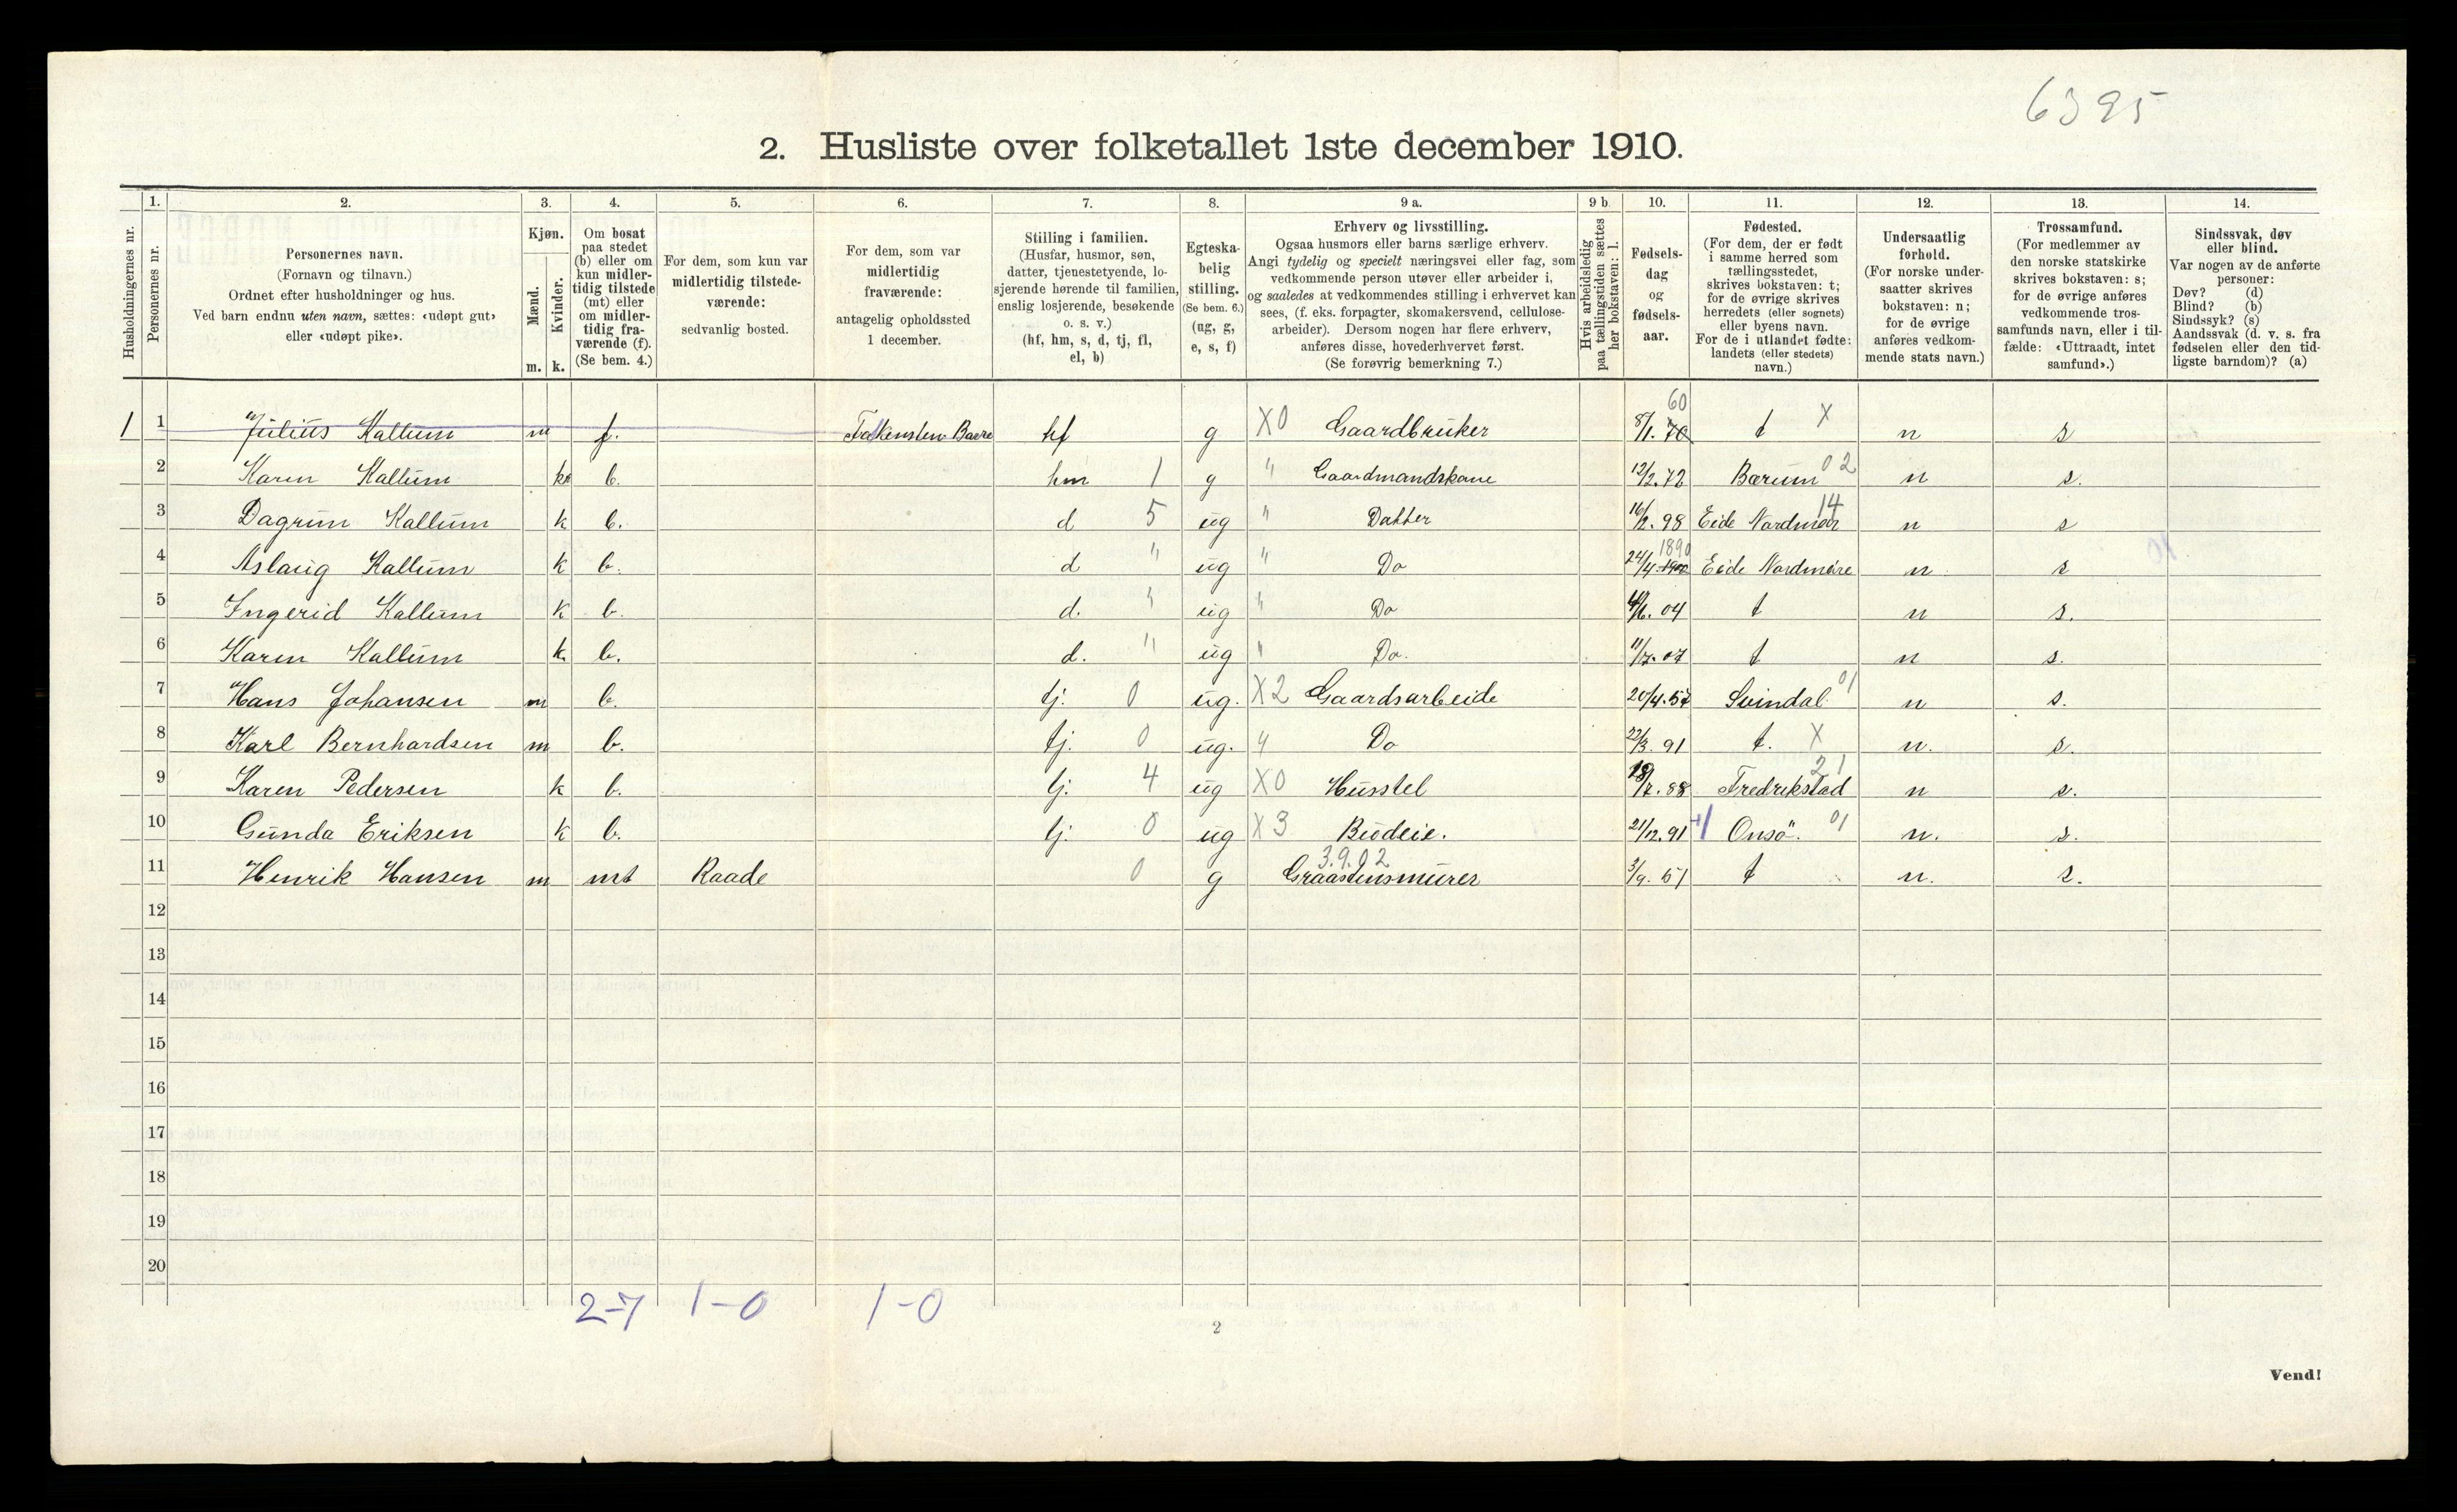 6395
2. Husliste over folketallet 1ste december 1910.
Husholdningernes nr.
1.
Personernes nr.
2.
Personernes navn.
(Fornavn og tilnavn.)
Ordnet efter husholdninger og hus.
Ved barn endnu uten navn, sættes: «udøpt gut»
eller «udøpt pike».
3.
Kjøn.
Mænd.
Kvinder.
m. k.
4.
Om bosat
paa stedet
(b) eller om
kun midler-
tidig tilstede
(mt) eller
om midler-
tidig fra-
værende (f).
(Se bem. 4.)
5.
For dem, som kun var
midlertidig tilstede-
værende:
sedvanlig bosted.
6.
For dem, som var
midlertidig
fraværende:
antagelig opholdssted
1 december.
7.
Stilling i familien.
(Husfar, husmor, søn,
datter, tjenestetyende, lo-
sjerende hørende til familien,
enslig losjerende, besøkende
o. s. v.)
(hf, hm, s, d, tj, fl,
el, b)
8.
Egteska-
belig
stilling.
(Se bem. 6.)
(ug, g,
e, s, f)
9 a.
Erhverv og livsstilling.
Ogsaa husmors eller barns særlige erhverv.
Angi tydelig og specielt næringsvei eller fag, som
vedkommende person utøver eller arbeider i,
og saaledes at vedkommendes stilling i erhvervet kan
sees, (f. eks. forpagter, skomakersvend, cellulose-
arbeider). Dersom nogen har flere erhverv,
anføres disse, hovederhvervet først.
(Se forøvrig bemerkning 7.)
9 b
Hvis arbeidsledig
paa tællingstiden sættes
her bokstaven: l.
10.
Fødsels-
dag
og
fødsels-
aar.
11.
Fødested.
(For dem, der er født
i samme herred som
tællingsstedet,
skrives bokstaven: t;
for de øvrige skrives
herredets (eller sognets)
eller byens navn.
For de i utlandet fødte:
landets (eller stedets)
navn.)
12.
Undersaatlig
forhold.
(For norske under-
saatter skrives
bokstaven: n;
for de øvrige
anføres vedkom-
mende stats navn.)
13.
Trossamfund.
(For medlemmer av
den norske statskirke
skrives bokstaven: s;
for de øvrige anføres
vedkommende tros-
samfunds navn, eller i til-
fælde: «Uttraadt, intet
samfund».)
14.
Sindssvak, døv
eller blind.
Var nogen av de anførte
personer:
Døv? (d)
Blind? (b)
Sindssyk? (s)
Aandssvak (d. v. s. fra
fødselen eller den tid-
ligste barndom)? (a)
1 1 Julius Kallum m f. hf g X0 Gaardbruker 8/1. 70 60 t X n s
2 Karen Kallum k b. hm 1 g " Gaardmandskone 12/2. 72 Bærum 02 n s.
3 Dagrun Kallum k b. d 5 ug " Datter 16/2. 98 Eide Nordmør 14 n s
4 Aslaug Kallum k b. d " ug " Do 24/4 1900 1890 Eide Nordmøre n s
5 Ingerid Kallum k b. d. " ug " Do 04 t n s.
6 Karen Kallum k. b. d. " ug " Do. 11/7. 07 t n s.
7 Hans Johansen m b. tj. 0 ug. X2 Gaardsarbeide 20/4. 57 Svindal 01 n s.
8 Karl Bernhardsen m b. tj. 0 ug. " Do 22/3. 91 t. X n. s.
9 Karen Pedersen k b. tj. 4 ug X0 Husstel 88 Fredrikstad 21 n s.
10 Gunda Eriksen k b. tj. 0 ug X3 Budeie. 21/12. 91 Onsö. 01 n. s.
11 Henrik Hansen m mt Raade 0 g 3.9.02 Graastensmurer 3/9. 51 t n. s.
12
13
14
15
16
17
18
19
20
2-7 1-0 1-0
2
Vend!